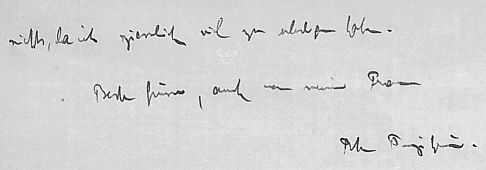 nichts, da ich ziemlich viel zu erledigen habe.
Beste Grüsse, auch von meiner Frau
Ihr